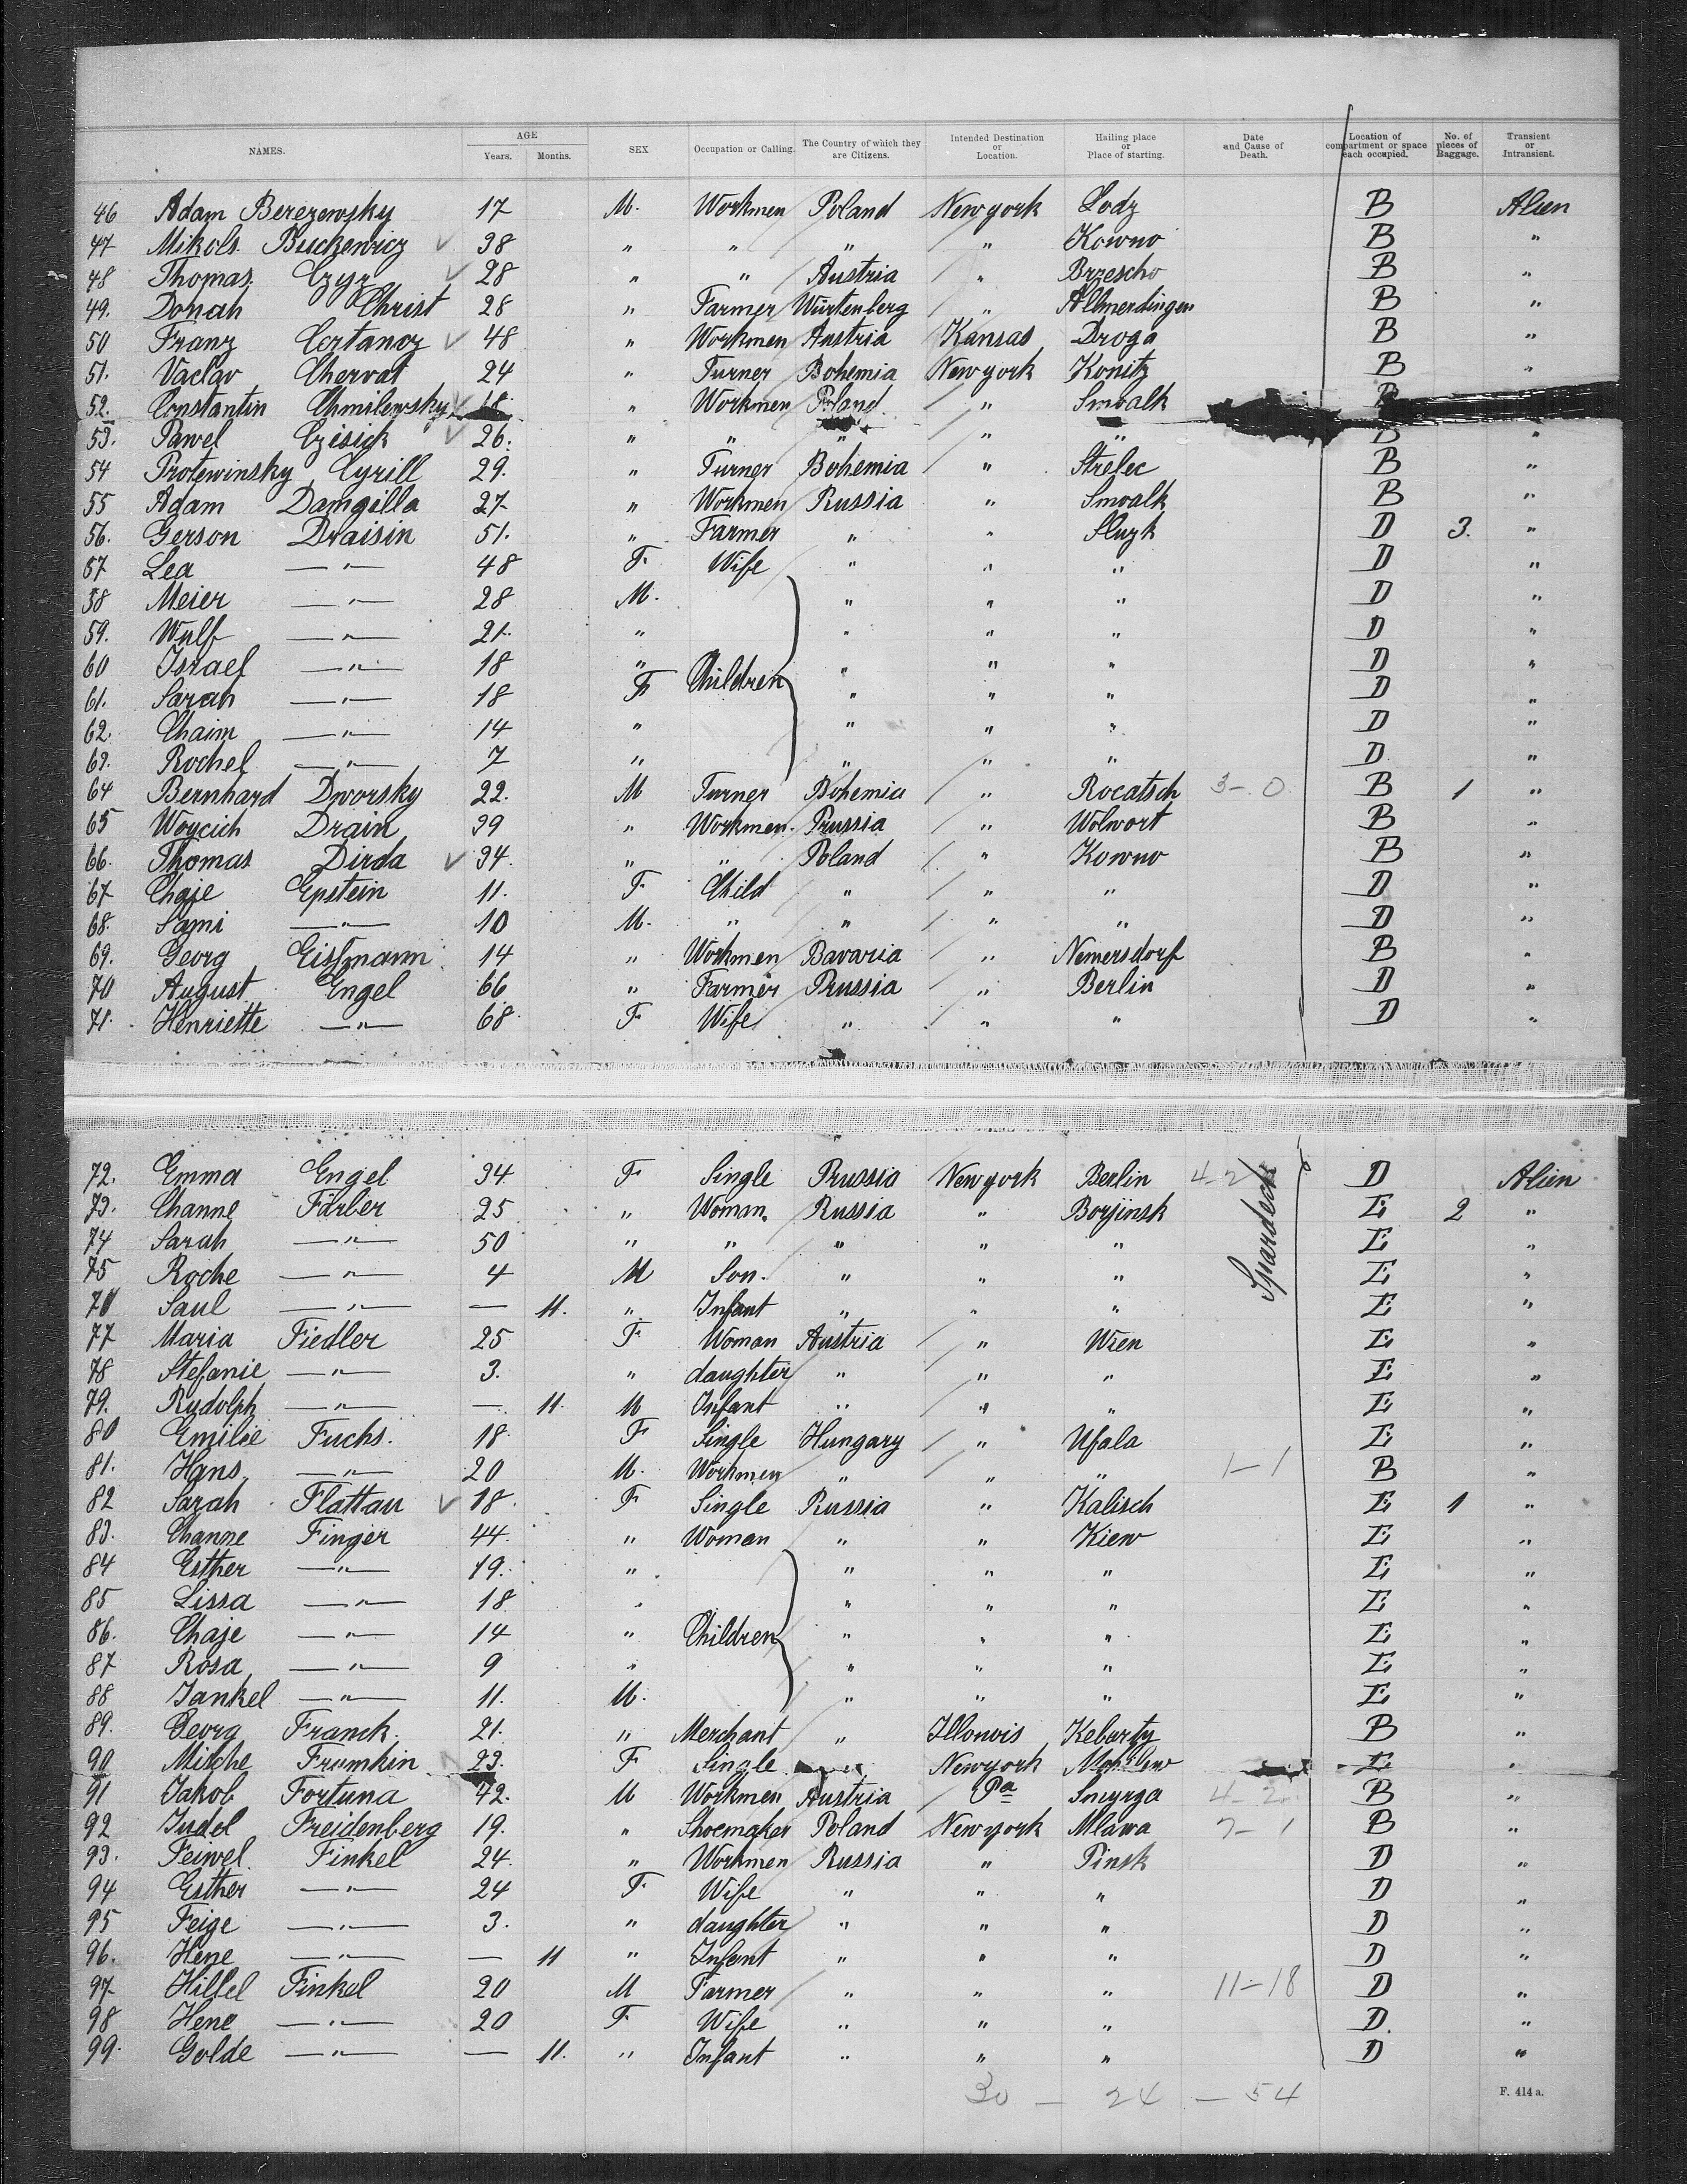 NAMES. AGE Years. Months. SEX Occupation or Calling. The Country of which they are Citizens. Intended Destination or Location. Hailing place or Place of starting. Date and Cause of Death. Location of compartment or space each occupied. No. of pieces of Baggage. Transient or Intransient.
46 Adam Berezewsky 17 M. Workmen Poland Newyork Lodz B Alien
47 Mikols. Buckewicz 38 " " " " Kowno B "
48 Thomas Czyz 28 " " Austria " Brzescho B "
49. Donah Christ 28 " Farmer Würtenberg " Allmerdingen B "
50 Franz Certancz 48 " Workmen Austria Kansas Droga B "
51. Vaclav Chervat 24 " Turner Bohemia Newyork Konitz B "
52. Constantin Chmilewsky 18 " Workmen Poland " Smoalk B
53. Pawel Czisick 26. " " " " " B "
54 Protewinsky Cyrill 29. " Turner Bohemia " Strelec B "
55 Adam Damgilla 27 " Workmen Russia " Smoalk B "
56. Gerson Draisin 51. " Farmer " " Sluzk D 3. "
57 Lea —"— 48 F Wife " " " D "
58 Meier —"— 28 M. " " " D "
59. Wulf —"— 21. " " " " D "
60 Israel —"— 18 " Children " " " D "
61. Sarah —"— 18 F " " " D "
62. Chaim —"— 14 " " " " D "
63. Rochel —"— 7 " " " " D "
64 Bernhard Dworsky 22. M Turner Bohemia " Rocatsch 3-0 B 1 "
65 Woycich Drain 39 " Workmen. Prussia " Wolwort B "
66. Thomas Dirda 34. " " Poland " Kowno B "
67 Chaje Epstein 11. F. Child " " " D "
68. Sami —"— 10 M. " " " " D "
69. Georg Eissmann 14 " Workmen Bavaria " Nemersdorf B "
70 August Engel 66 " Farmer Prussia " Berlin D "
71. Henriette —"— 68. F Wife " " " D "
72. Emma Engel 34 F Single Prussia Newyork Berlin 4-2 D Alien
73. Channe Färber 25 " Woman. Russia " Borjinsk E 2 "
Spardeck
74 Sarah —"— 50 " " " " " E "
75 Roche —"— 4 M Son. " " " E "
76 Saul —"— — 11. " Infant " " " E "
77 Maria Fiedler 25 F Woman Austria " Wien E "
78 Stefanie —"— 3. " daughter " " " E "
79. Rudolph —"— — 11. M Infant " " " E "
80 Emilie Fuchs. 18 F Single Hungary " Ufala E "
81. Hans —"— 20 M. Workmen " " " 1-1 B "
82 Sarah Flattau 18. F Single Russia " Kalisch E 1 "
83. Channe Finger 44. " Woman " " Kiew E "
84 Esther —"— 19. " " " " E "
85 Lissa —"— 18 " " " " E "
86. Chaje —"— 14 " Children " " " E "
87 Rosa —"— 9 " " " " E "
88 Jankel —"— 11. M. " " " E "
89. Georg Franck. 21. " Merchant " Illonois Kebarty B "
90 Mische Frumkin 23. F Single Newyork Mohilew E "
91 Jakob Fortuna 42. M Workmen Austria Pa Smyrga 4-2 B "
92 Judel Freidenberg 19. " Shoemaker Poland Newyork Mlawa 7-1 B "
93. Feiwel Finkel 24. " Workmen Russia " Pinsk D "
94 Esther —"— 24 F Wife " " " D "
95 Feige —"— 3. " daughter " " " D "
96. Hene —"— — 11 " Infant " " " D "
97 Hillel Finkel 20 M Farmer " " " 11-18 D "
98 Hene —"— 20 F Wife " " " D "
99. Golde —"— — 11. " Infant " " " D "
30 — 24 — 54
F. 414 a.